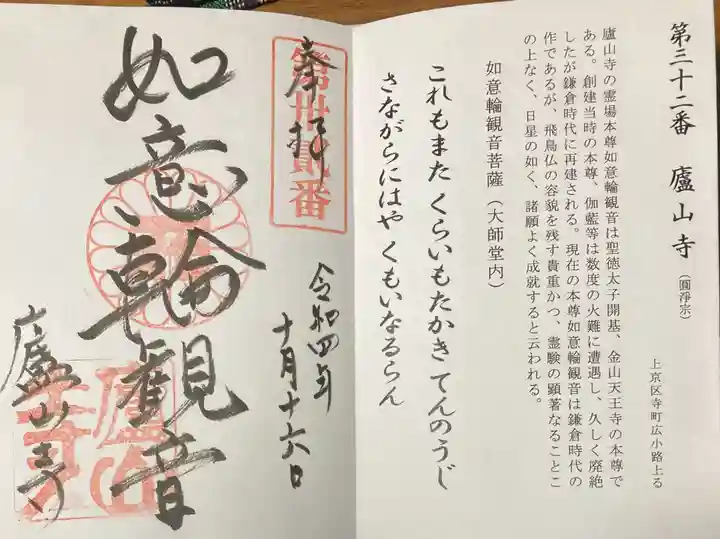 第三十二番 廬山寺（圓淨宗）
上京区寺町広小路上る
廬山寺の霊場本尊如意輪観音は聖徳太子開基、金山天王寺の本尊で
ある。創建当時の本尊、伽藍等は数度の火難に遭遇し、久しく廃絶
したが鎌倉時代に再建される。現在の本尊如意輪観音は鎌倉時代の
作であるが、飛鳥仏の容貌を残す貴重かつ、霊験の顕著なることこ
の上なく、日星の如く、諸願よく成就すると云われる。
如意輪観音菩薩（大師堂内）
これもまた くらいもたかき てんのうじ
さながらにはや くもいなるらん
奉拝
第卅貳番
令和四年
十月十六日
如意輪観音
廬山寺
廬山
寺印